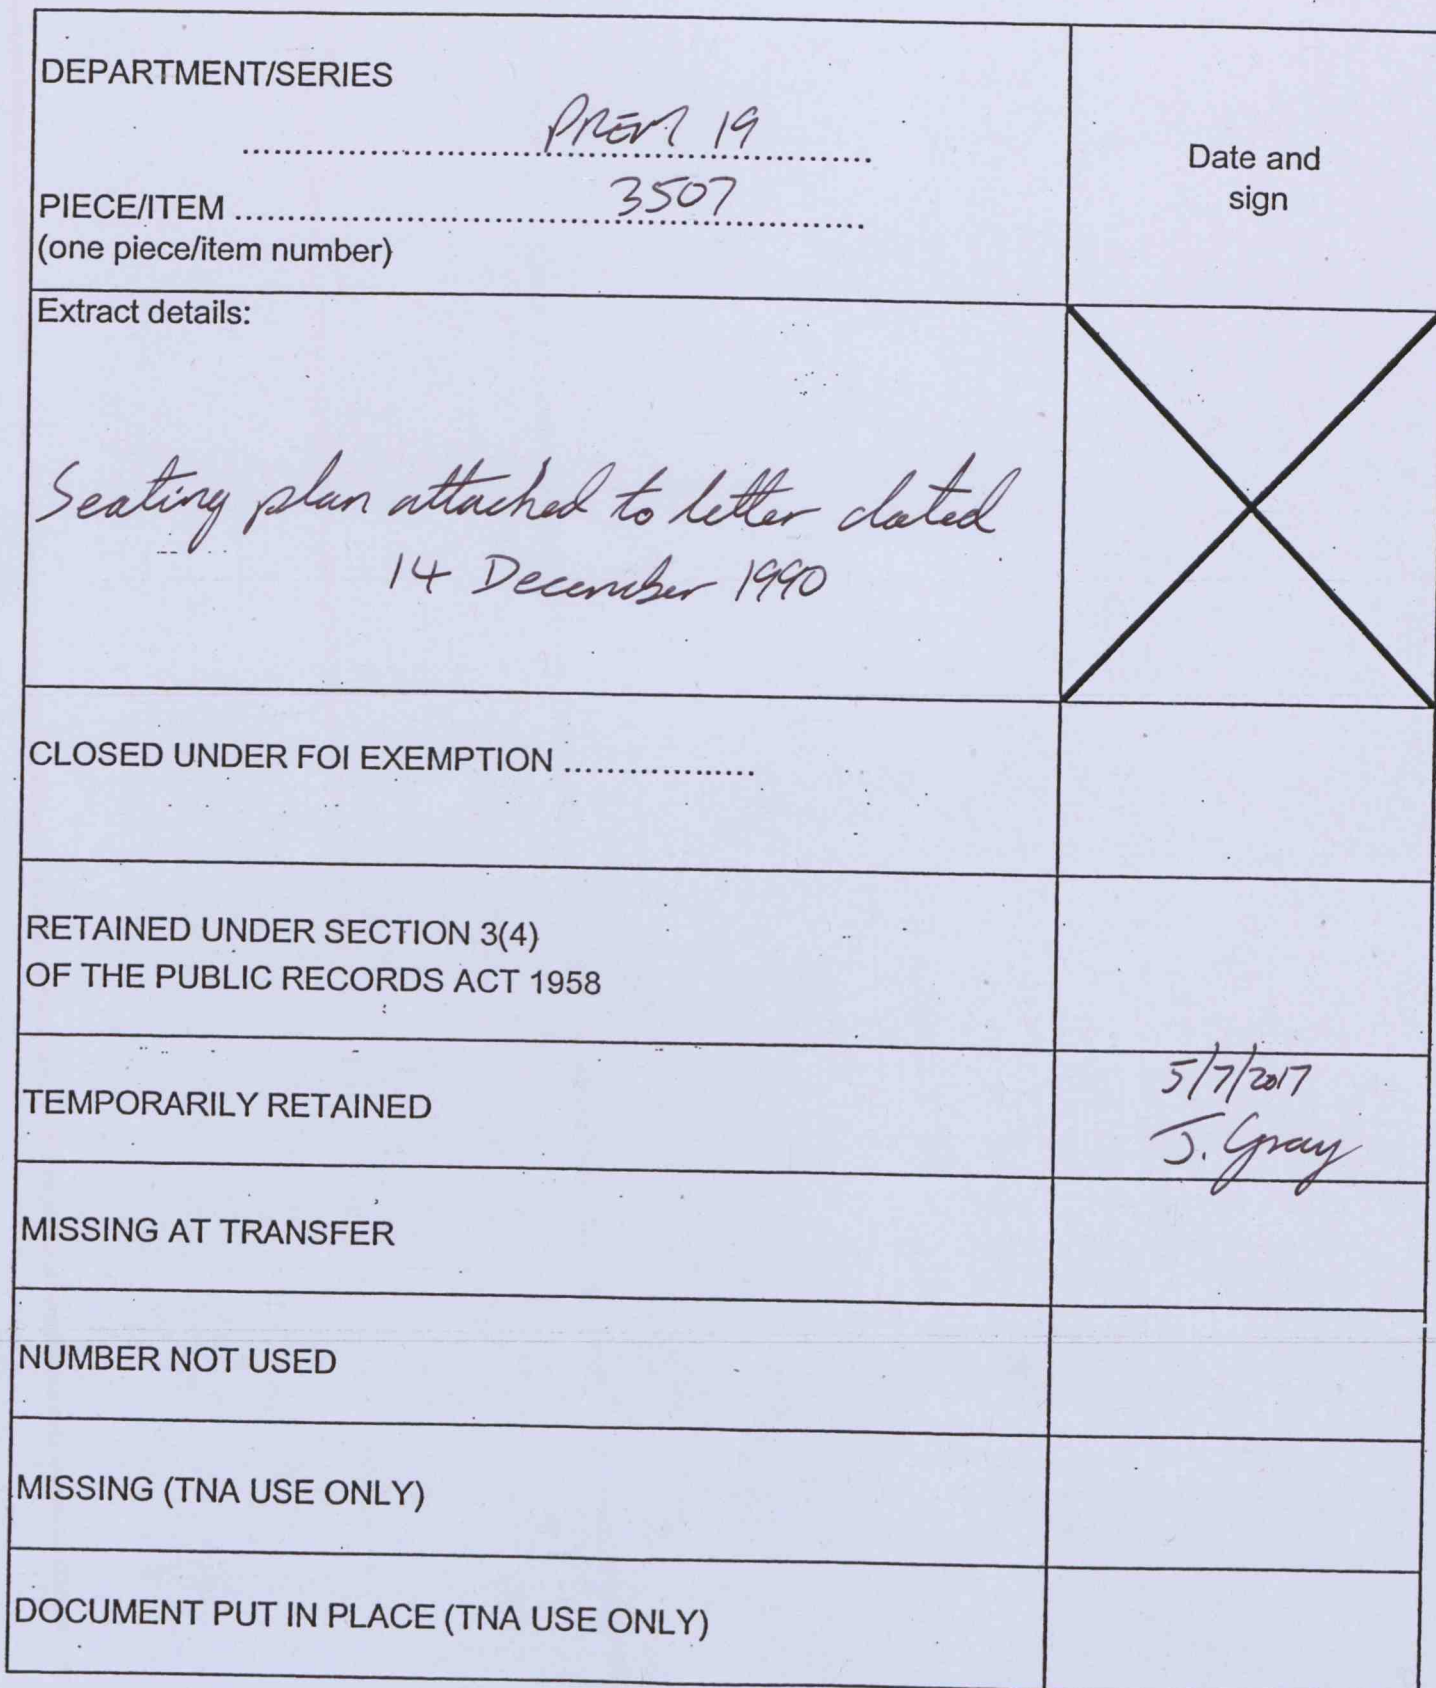 DEPARTMENT/SERIES
PREM 19
Date and
sign
PIECE/ITEM 3507
(one piece/item number)
Extract details:
Seating plan attached to letter dated
14 December 1990
CLOSED UNDER FOI EXEMPTION
RETAINED UNDER SECTION 3(4)
OF THE PUBLIC RECORDS ACT 1958
TEMPORARILY RETAINED
5/7/2017
J. Gray
MISSING AT TRANSFER
NUMBER NOT USED
MISSING (TNA USE ONLY)
DOCUMENT PUT IN PLACE (TNA USE ONLY)